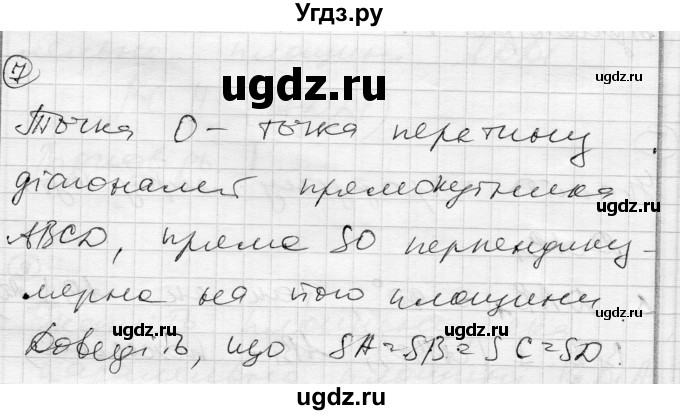 Угдз.ру
ugdz.ru
7
Точка O – точка перетину
ugdz.ru
діагоналей прямокутника
ugdz.ru
ABCD, пряма SO перпендику-
лярна на його площини.
ugdz.ru
ugdz.ru
Доведіть, що SA=SB=SC=SD.
Угдз.ру